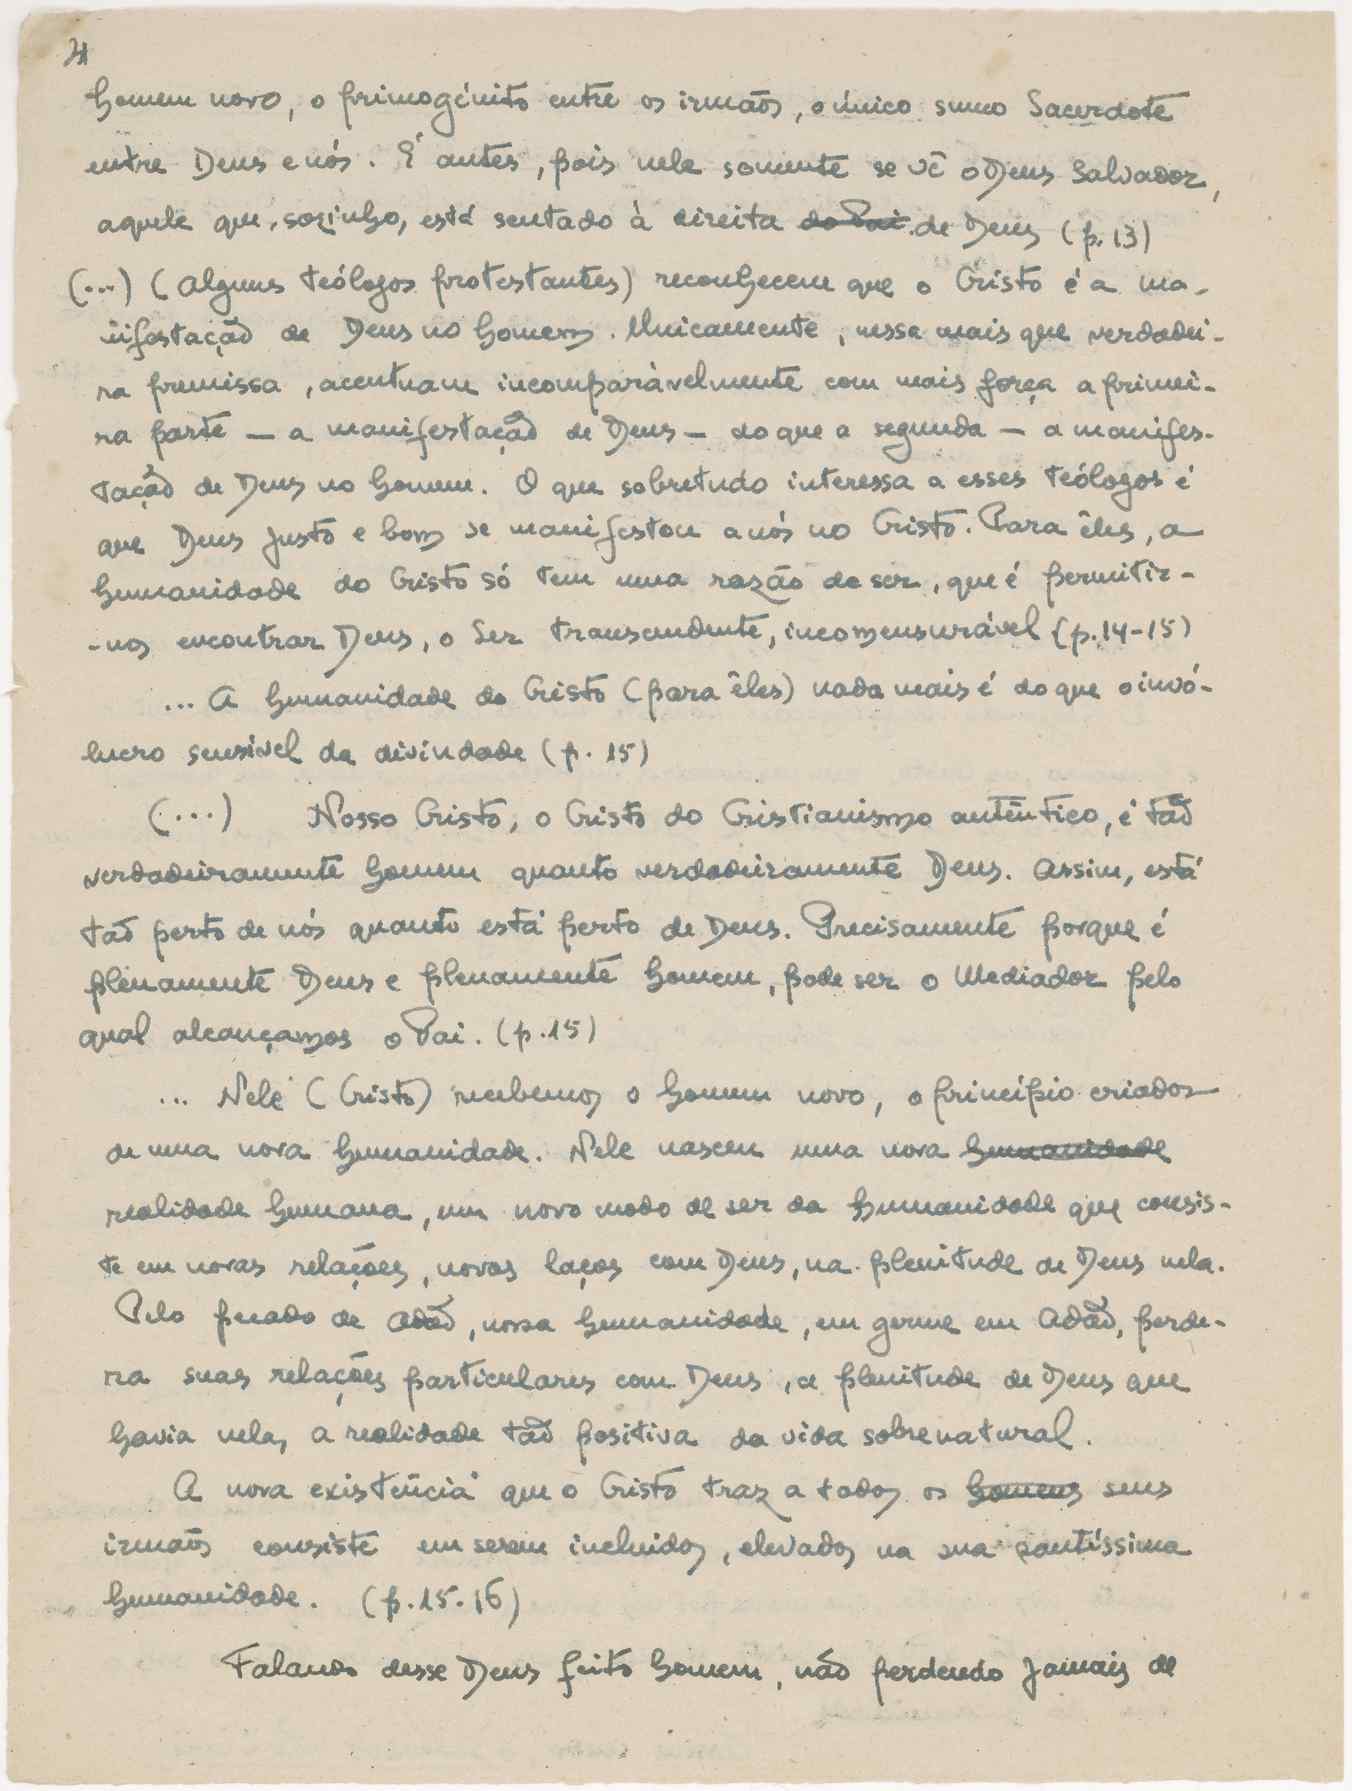 4
homem novo, o primogênito entre os irmãos, o único sumo Sacerdote
entre Deus e nós. É antes, pois nele somente se vê o Deus Salvador,
aquele que, sozinho, está sentado à direita do Pai de Deus (p. 13)
(...) (Alguns teólogos protestantes) reconhecem que o Cristo é a ma-
nifestação de Deus no homem. Unicamente, nessa mais que verdadei-
ra premissa, acentuam incomparàvelmente com mais força a primei-
ra parte — a manifestação de Deus — do que a segunda — a manifes-
tação de Deus no homem. O que sobretudo interessa a esses teólogos é
que Deus justo e bom se manifestou a nós no Cristo. Para êles, a
humanidade do Cristo só tem uma razão de ser, que é permitir-
-nos encontrar Deus, o Ser transcendente, incomensurável (p. 14-15)
... A humanidade do Cristo (para êles) nada mais é do que o invó-
lucro sensível da divindade (p. 15)
(...) Nosso Cristo, o Cristo do Cristianismo autêntico, é tão
verdadeiramente homem quanto verdadeiramente Deus. Assim, está
tão perto de nós quanto está perto de Deus. Precisamente porque é
plenamente Deus e plenamente homem, pode ser o Mediador pelo
qual alcançamos o Pai. (p. 15)
... Nele (Cristo) recebemos o homem novo, o princípio criador
de uma nova humanidade. Nele nasceu uma nova humanidade
realidade humana, um novo modo de ser da humanidade que consis-
te em novas relações, novos laços com Deus, na plenitude de Deus nela.
Pelo pecado de Adão, nossa humanidade, em germe em Adão, perde-
ra suas relações particulares com Deus, a plenitude de Deus que
havia nela, a realidade tão positiva da vida sobrenatural.
A nova existência que o Cristo traz a todos os homens seus
irmãos consiste em serem incluidos, elevados na sua santíssima
humanidade. (p. 15.16)
Falando desse Deus feito homem, não perdendo jamais de